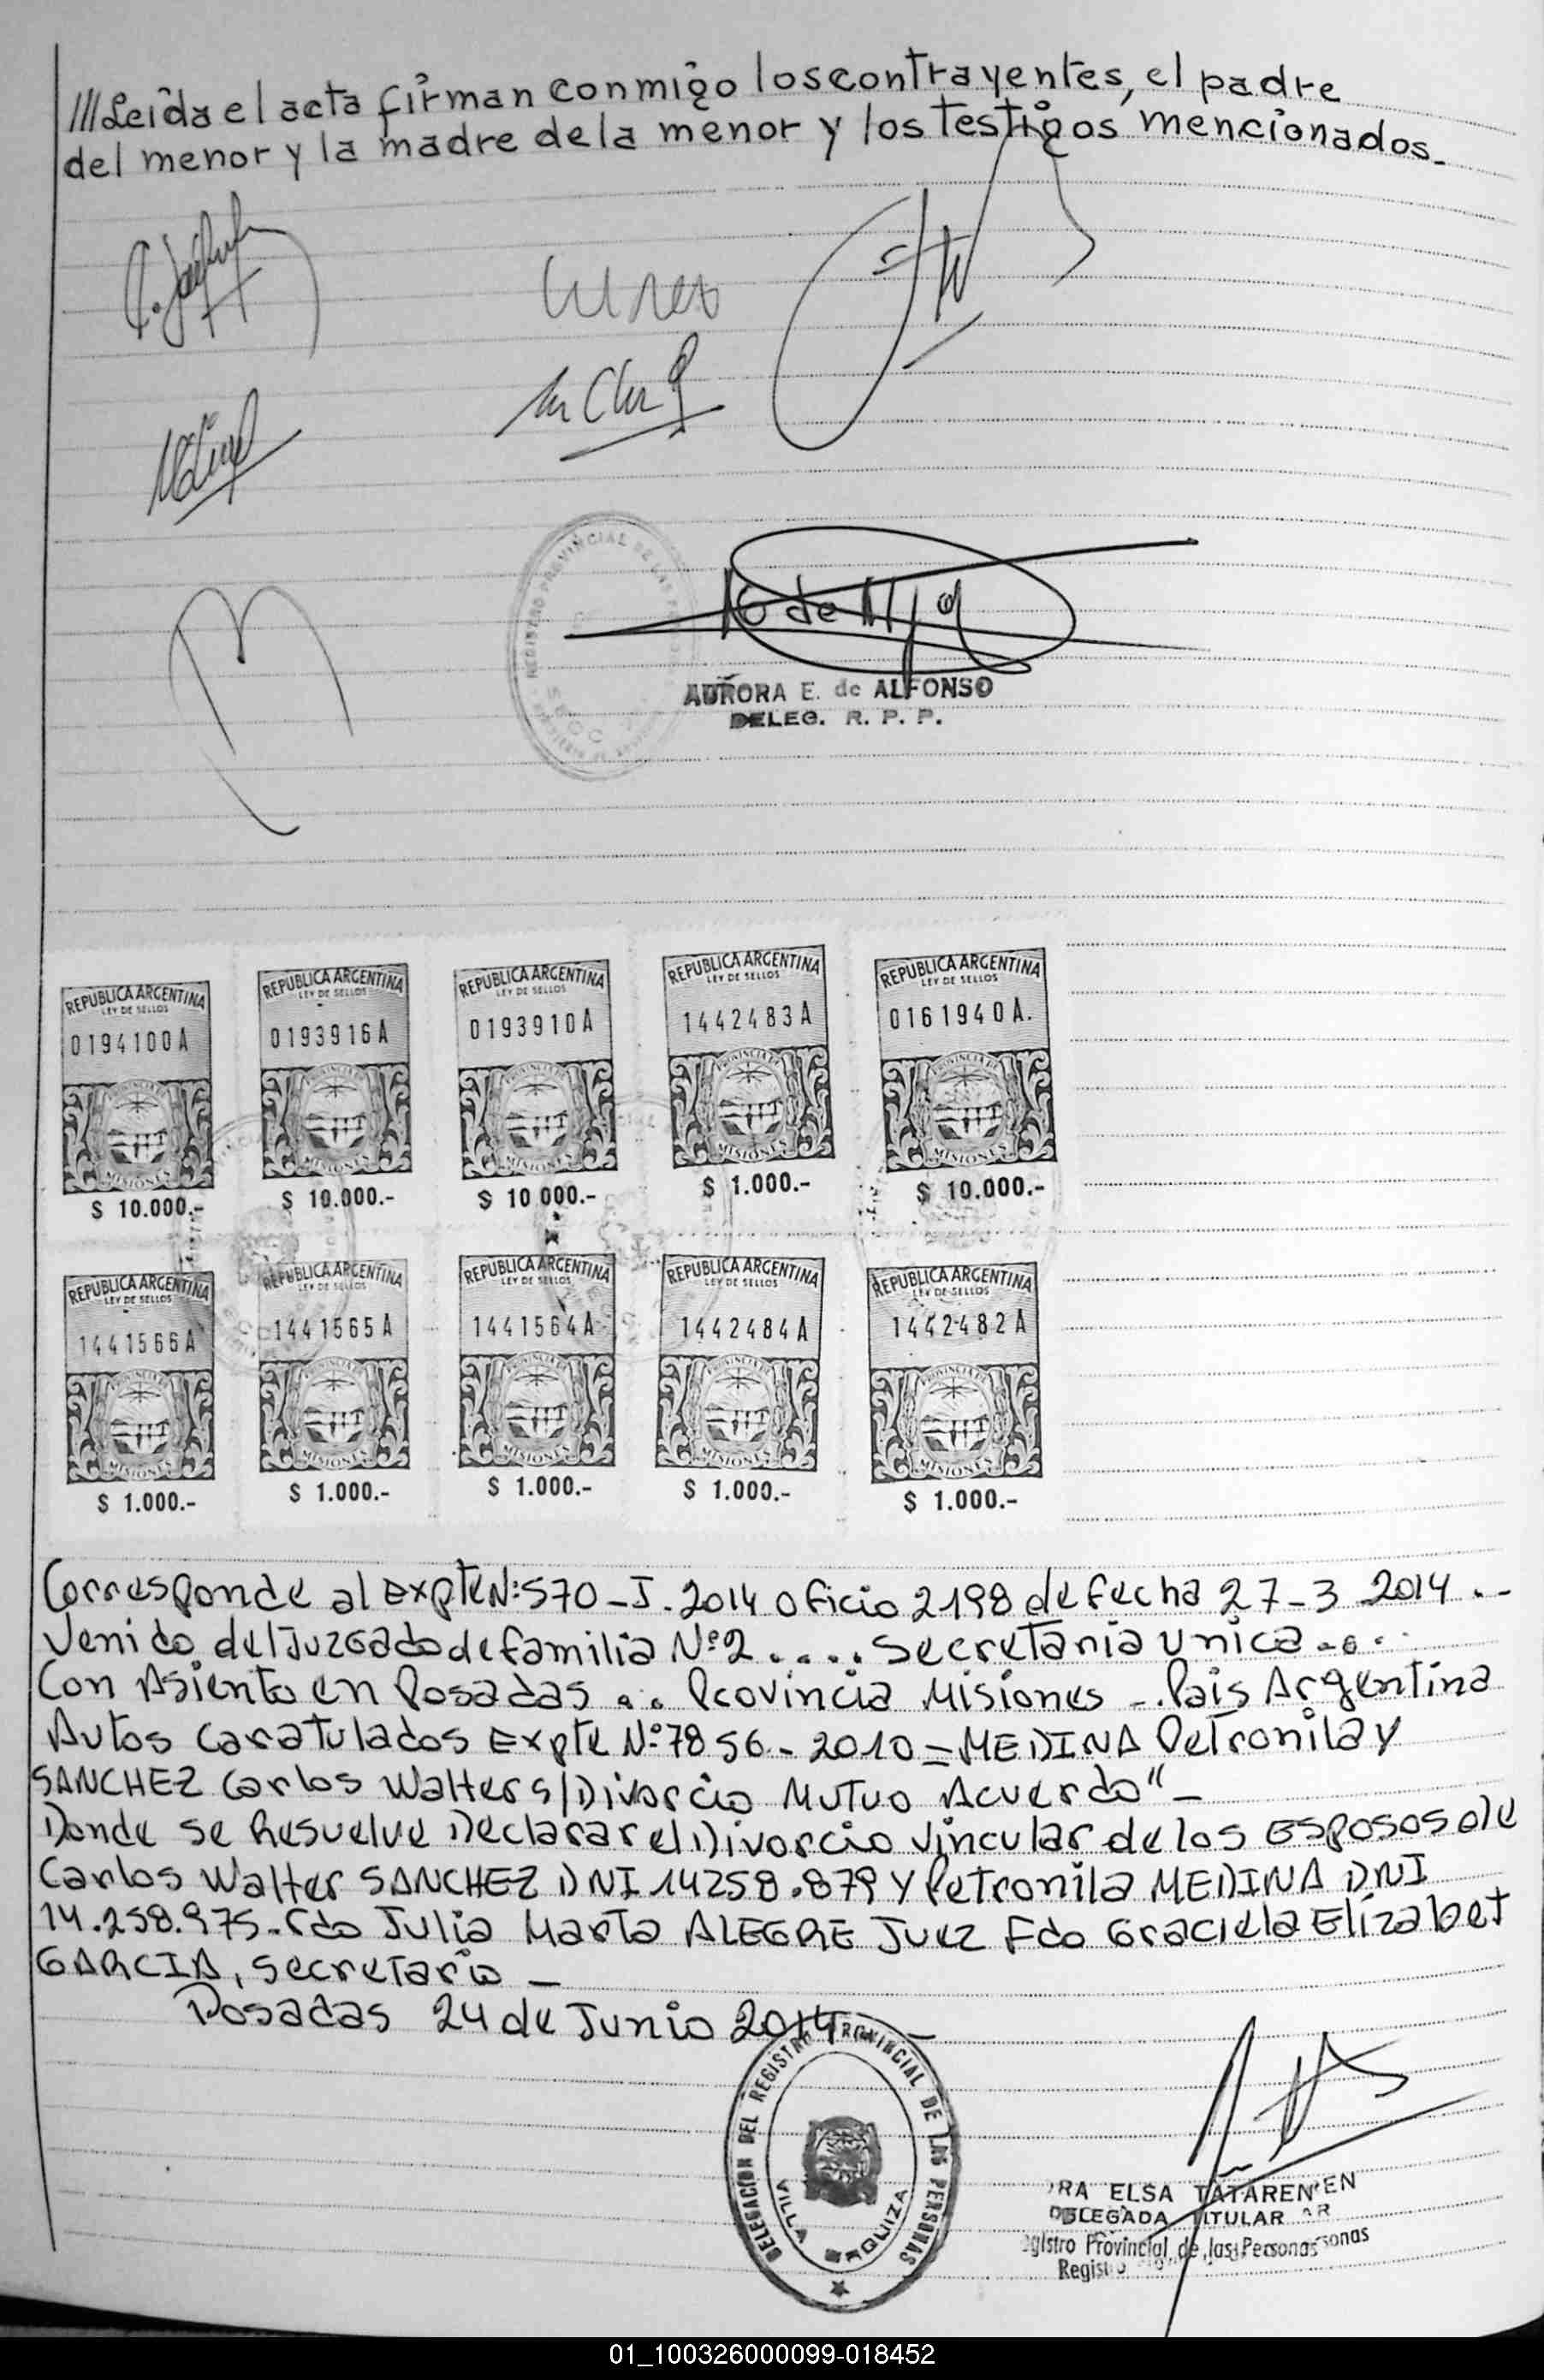 ///Leida el acta firman conmigo los contrayentes, el padre
del menor y la madre de la menor y los testigos mencionados.-
AURORA E. de ALFONSO
DELEG. R. P. P.
REPUBLICA ARGENTINA
LEY DE SELLOS
0194100A
PROVINCIA DE
MISIONES
$ 10.000.-
REPUBLICA ARGENTINA
LEY DE SELLOS
0193916A
PROVINCIA DE
MISIONES
$ 10.000.-
REPUBLICA ARGENTINA
LEY DE SELLOS
0193910A
PROVINCIA DE
MISIONES
$ 10.000.-
REPUBLICA ARGENTINA
LEY DE SELLOS
1442483A
PROVINCIA DE
MISIONES
$ 1.000.-
REPUBLICA ARGENTINA
LEY DE SELLOS
0161940A.
PROVINCIA DE
MISIONES
$ 10.000.-
REPUBLICA ARGENTINA
LEY DE SELLOS
1441566A
PROVINCIA DE
MISIONES
$ 1.000.-
REPUBLICA ARGENTINA
LEY DE SELLOS
1441565A
PROVINCIA DE
MISIONES
$ 1.000.-
REPUBLICA ARGENTINA
LEY DE SELLOS
1441564A
PROVINCIA DE
MISIONES
$ 1.000.-
REPUBLICA ARGENTINA
LEY DE SELLOS
1442484A
PROVINCIA DE
MISIONES
$ 1.000.-
REPUBLICA ARGENTINA
LEY DE SELLOS
1442482A
PROVINCIA DE
MISIONES
$ 1.000.-
Corresponde al expte N:570-J.2014 oficio 2198 de fecha 27-3-2014..-
Venido del Juzgado de familia Nº2..... Secretaria unica....
Con Asiento en Posadas... Provincia Misiones -. Pais Argentina
Autos Caratulados Expte Nº7856.-2010-MEDINA Petronila y
SANCHEZ Carlos Walter S/Divorcio Mutuo Acuerdo"-
Donde se Resuelve Declarar el Divorcio Vincular de los Esposos de
Carlos Walter SANCHEZ DNI 14258.879 y Petronila MEDINA DNI
14.258.975-Fdo Julia Marta ALEGRE Juez Fdo Graciela Elizabet
GARCIA, Secretario -
Posadas 24 de Junio 2014 -
DELEGACION DEL REGISTRO PROVINCIAL DE LAS PERSONAS
VILLA URQUIZA
RA ELSA TATAREN
DELEGADA TITULAR
Registro Provincial de las Personas
01_100326000099-018452